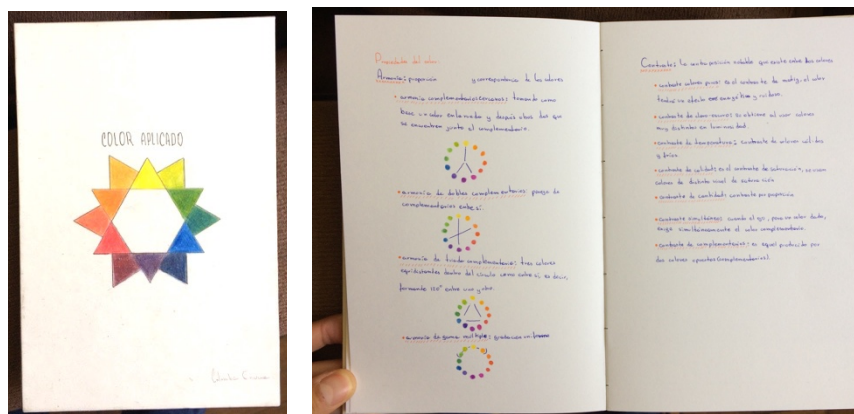 COLOR APLICADO
Armonía: proporción y correspondencia de los colores
• armonía complementarios cercanos: tomando como
base un color en la rueda y después otros dos que
se encuentren junto al complementario.
• armonía de dobles complementarios: parejas de
complementarios entre sí.
• armonía de triada complementaria: tres colores
equidistantes dentro del círculo como entre sí, es decir,
formando 120° entre uno y otro.
• armonía de gama múltiple:
Contraste: la contraposición notable que existe entre dos colores
• contraste colores puros: es el contraste de matiz, el color
efecto enérgico y ruidoso.
• contraste de claro-oscuro: se obtiene al usar colores
muy distintos en luminosidad.
• contraste de temperatura: contraste de colores cálidos
y fríos
• contraste de calidad: es el contraste de saturación, se usan
colores de distinto nivel de saturación
• contraste de cantidad: contraste por proporción
• contraste simultáneo: cuando el ojo, para un color dado,
exige simultáneamente el color complementario.
• contraste de complementarios: es aquel producido por
dos colores opuestos (complementarios)